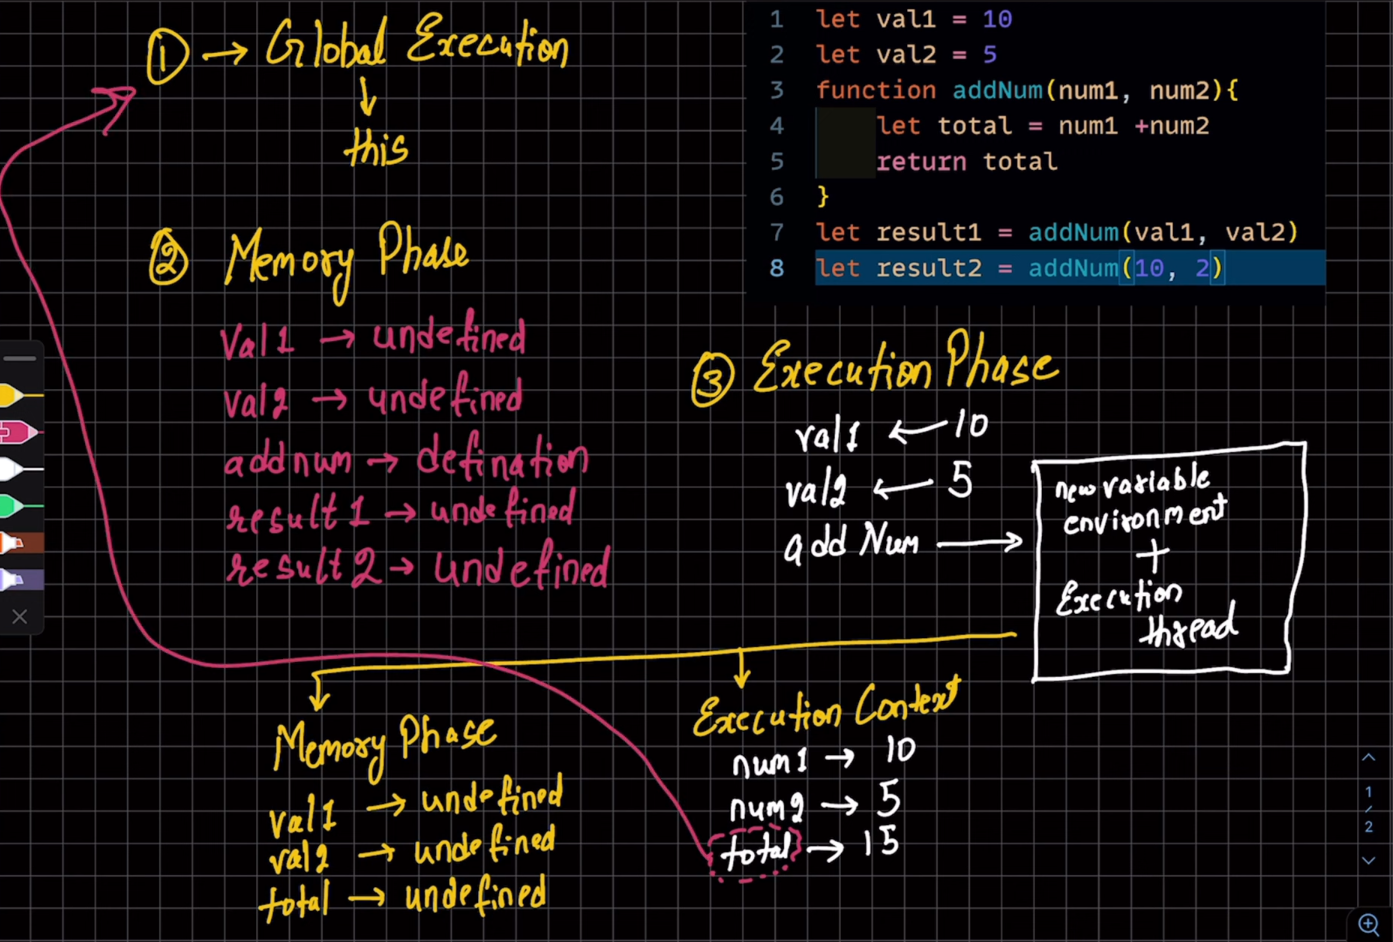 ① → Global Execution
↓
this
② Memory Phase
Val1 → undefined
val2 → undefined
addnum → defination
result1 → undefined
result2 → undefined
1 let val1 = 10
2 let val2 = 5
3 function addNum(num1, num2){
4 let total = num1 +num2
5 return total
6 }
7 let result1 = addNum(val1, val2)
8 let result2 = addNum(10, 2)
③ Execution Phase
val1 ← 10
val2 ← 5
add Num →
new variable
environment
+
Execution
thread
Memory Phase
val1 → undefined
val2 → undefined
total → undefined
Execution Context
num1 → 10
num2 → 5
total → 15
1
/
2